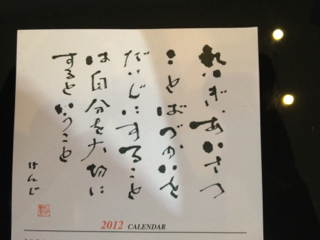 れいぎ、あいさつ
ことばづかいを
だいじにすること
は自分を大切に
するということ
けんじ
2012 CALENDAR